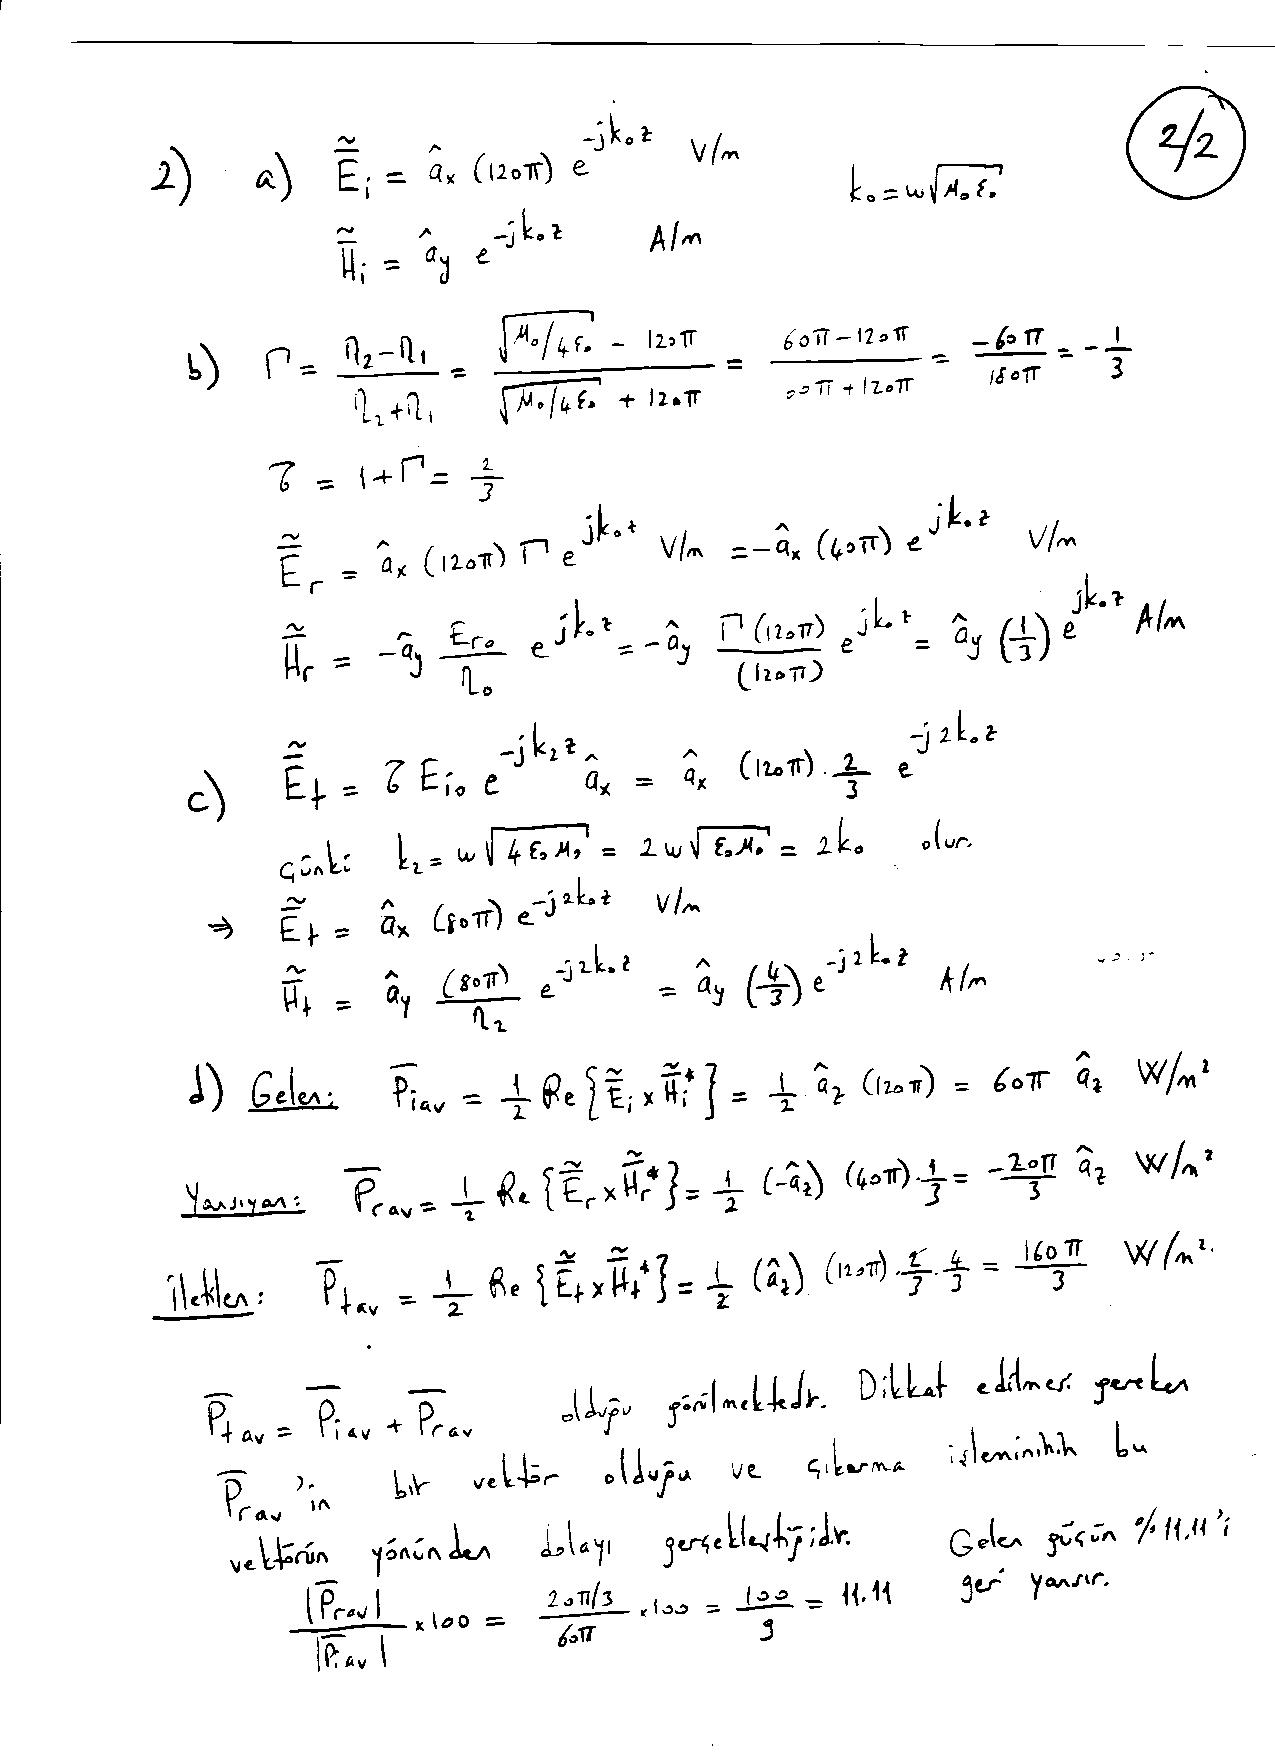 2/2
2) a) Ẽi = âx (120π) e^{-jk₀z} V/m k₀ = w√(μ₀ε₀)
H̃i = ây e^{-jk₀z} A/m
b) Γ = (η₂-η₁)/(η₂+η₁) = (√(μ₀/4ε₀) - 120π)/(√(μ₀/4ε₀) + 120π) = (60π-120π)/(60π+120π) = -60π/180π = -1/3
τ = 1+Γ = 2/3
Ẽr = âx (120π) Γ e^{jk₀z} V/m = -âx (40π) e^{jk₀z} V/m
H̃r = -ây Er₀/η₀ e^{jk₀z} = -ây Γ(120π)/(120π) e^{jk₀z} = ây (1/3) e^{jk₀z} A/m
c) Ẽt = τ Ei₀ e^{-jk₂z} âx = âx (120π) . 2/3 e^{-j2k₀z}
çünki k₂ = w√(4ε₀μ₀) = 2w√(ε₀μ₀) = 2k₀ olur.
⇒ Ẽt = âx (80π) e^{-j2k₀z} V/m
H̃t = ây (80π)/η₂ e^{-j2k₀z} = ây (4/3) e^{-j2k₀z} A/m
d) Gelen: P̄iav = 1/2 Re{Ẽi x H̃i*} = 1/2 âz (120π) = 60π âz W/m²
Yansıyan: P̄rav = 1/2 Re{Ẽr x H̃r*} = 1/2 (-âz) (40π) . 1/3 = -20π/3 âz W/m²
İletilen: P̄tav = 1/2 Re{Ẽt x H̃t*} = 1/2 (âz) (120π) . 2/3 . 4/3 = 160π/3 W/m².
P̄tav = P̄iav + P̄rav olduğu görülmektedir. Dikkat edilmesi gereken
P̄rav'in bir vektör olduğu ve çıkarma işleminin bu
vektörün yönünden dolayı gerçekleştiğidir. Gelen gücün %11.11'i
geri yansır.
|P̄rav|/|P̄iav| x100 = (20π/3)/60π x100 = 100/9 = 11.11